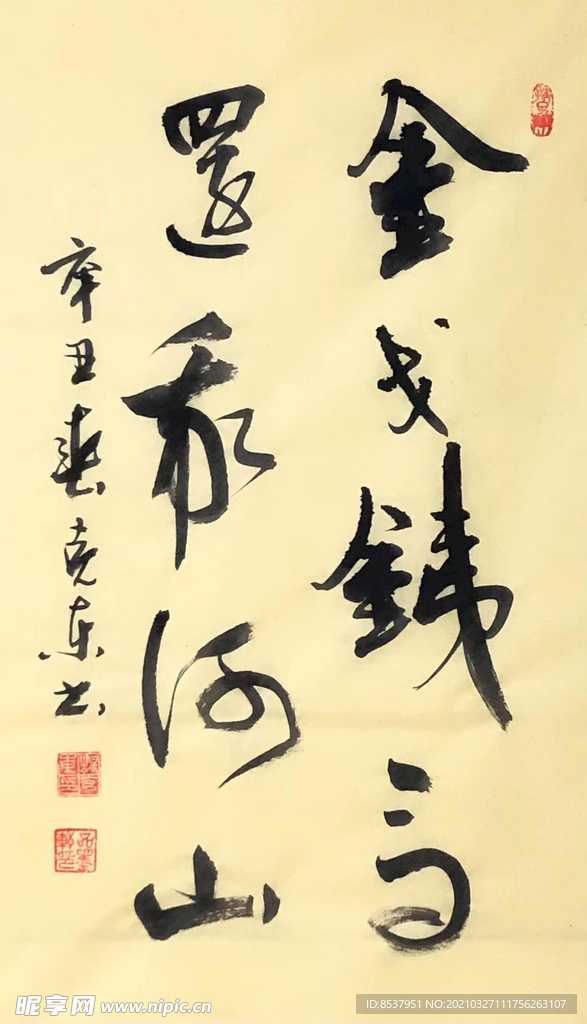 金戈銕馬
還我河山
辛丑春克东书
昵享网 www.nipic.cn
ID:8537951 NO:20210327111756263107